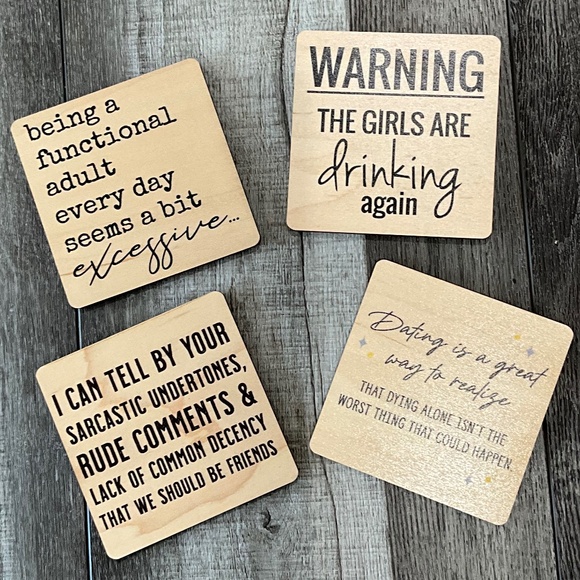 being a
functional
adult
every day
seems a bit
excessive...
WARNING
THE GIRLS ARE
drinking
again
I CAN TELL BY YOUR
SARCASTIC UNDERTONES,
RUDE COMMENTS &
LACK OF COMMON DECENCY
THAT WE SHOULD BE FRIENDS
Dating is a great
way to realize
THAT DYING ALONE ISN'T THE
WORST THING THAT COULD HAPPEN.